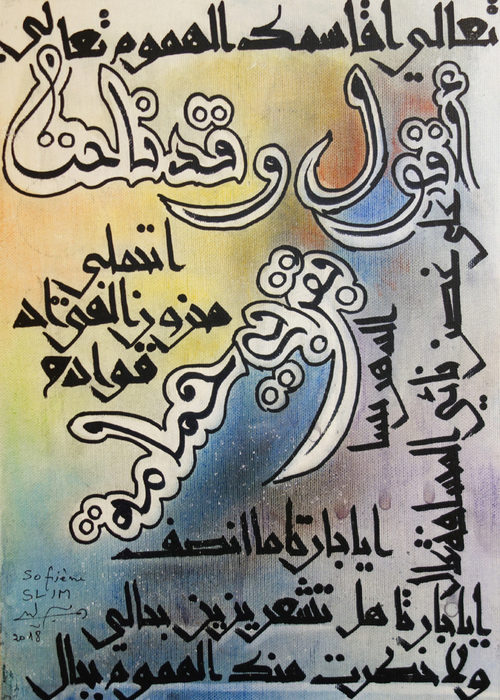 تعالي اقاسمك الهموم تعالي
أقول وقد ناحت
بقربي حمامة
ايا جارتا هل تشعرين بحالي
ولا خطرت منك الهموم ببال
محزون الفؤاد
قوادم
على غصن نائي المسافة عال
ايا جارتا ما انصف
الدهر بيننا
Sofiène
SLIM
2018